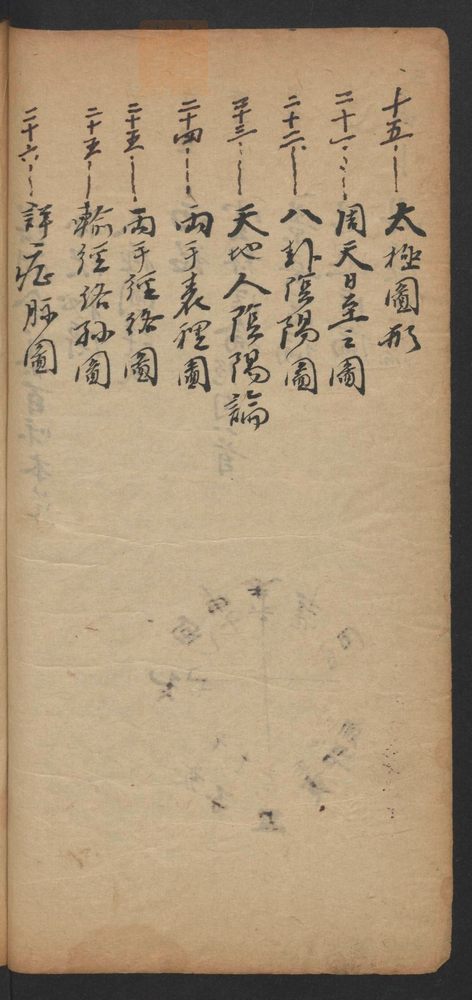 十五 太極圖形
二十一 周天日至之圖
二十二 八卦陰陽圖
二十三 天地人陰陽論
二十四 兩手表裡圖
二十五 兩手經絡圖
二十五 輸經絡脉圖
二十六 詳症脈圖